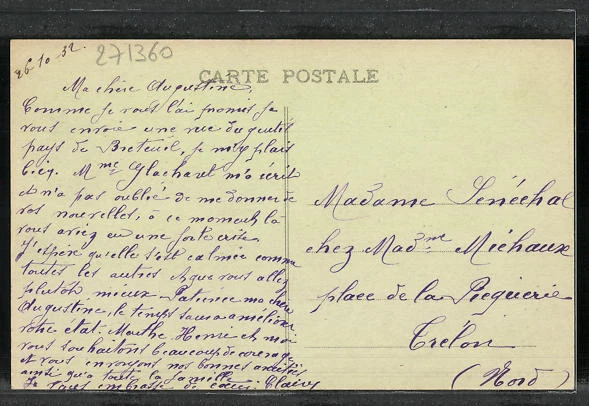 26.10.32.
271360
CARTE POSTALE
Ma chère Augustine,
Comme je vous l'ai promis je
vous envoie une vue du
pays de Breteuil, je m'y plais
bien. Mme Glacharet m'a écrit
et n'a pas oublié de me donner de
vos nouvelles, à ce moment là
vous aviez eu une forte crise
J'espère qu'elle s'est calmée comme
toutes les autres et que vous allez
plutôt mieux. Patience ma chère
Augustine, le temps saura améliorer
votre état. Marthe, Henri et moi
vous souhaitons beaucoup de courage
et vous envoyons nos bonnes amitiés
ainsi qu'à toute la famille
Je vous embrasse de cœur. Claire
Madame Sénéchal
chez Madme Michaux
place de la Piquerie
Trélon
(Nord)